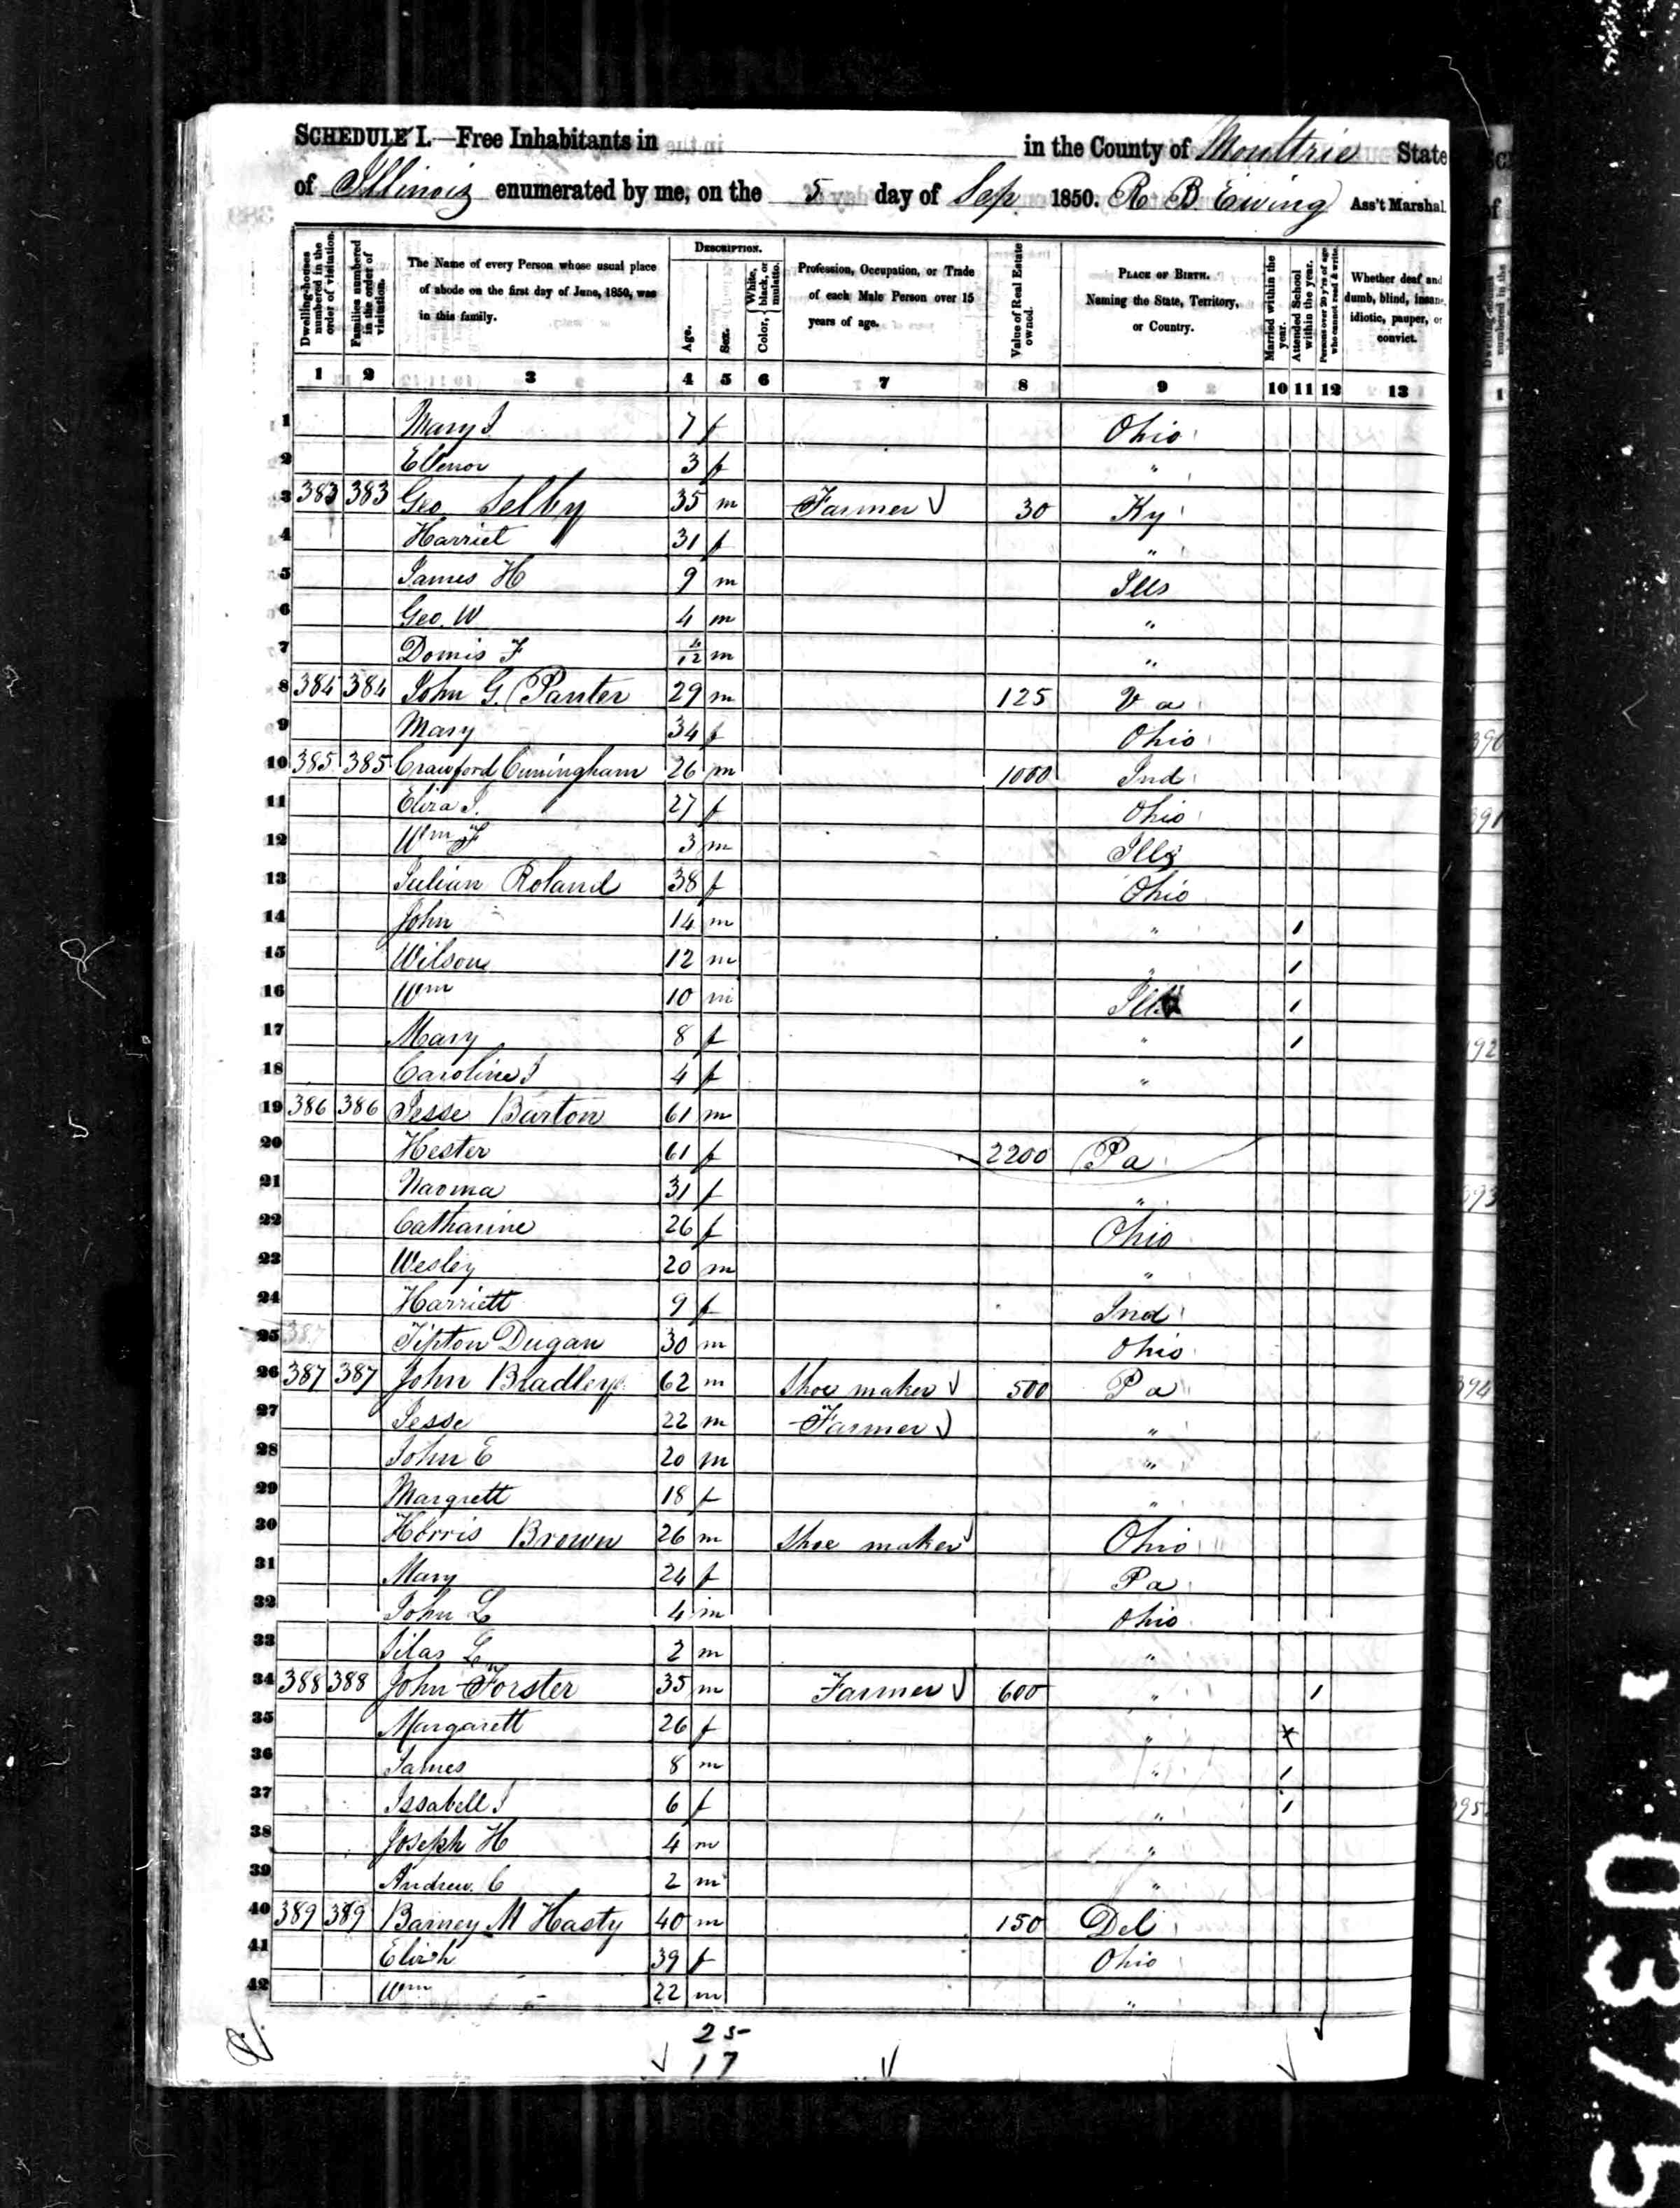 SCHEDULE I.—Free Inhabitants in in the County of Moultrie State
of Illinois enumerated by me, on the 5 day of Sep 1850. R B. Ewing Ass't Marshal
Dwelling-houses numbered in the order of visitation.
Families numbered in the order of visitation.
The Name of every Person whose usual place of abode on the first day of June, 1850, was in this family.
DESCRIPTION.
Age.
Sex.
Color, White, black, or mulatto.
Profession, Occupation, or Trade of each Male Person over 15 years of age.
Value of Real Estate owned.
PLACE OF BIRTH. Naming the State, Territory, or Country.
Married within the year.
Attended School within the year.
Persons over 20 y'rs of age who cannot read & write.
Whether deaf and dumb, blind, insane, idiotic, pauper, or convict.
1 2 3 4 5 6 7 8 9 10 11 12 13
1 Mary J 7 f Ohio
2 Ellenor 3 f "
3 383 383 Geo Selby 35 m Farmer 30 Ky
4 Harriet 31 f "
5 James H 9 m Ills
6 Geo. W 4 m "
7 Domis F 4/12 m "
8 384 384 John G. Panter 29 m 125 Va
9 Mary 34 f Ohio
10 385 385 Crawford Cuningham 26 m 1000 Ind
11 Eliza J. 27 f Ohio
12 Wm F 3 m Ills
13 Julian Roland 38 f Ohio
14 John 14 m " 1
15 Wilson 12 m " 1
16 Wm 10 m Ills 1
17 Mary 8 f " 1
18 Caroline J 4 f "
19 386 386 Jesse Barton 61 m
20 Hester 61 f 2200 Pa
21 Naoma 31 f "
22 Catharine 26 f Ohio
23 Wesley 20 m "
24 Harriett 9 f Ind
25 387 Tipton Dugan 30 m Ohio
26 387 387 John Bradley 62 m Shoe maker 500 Pa
27 Jesse 22 m Farmer "
28 John E 20 m "
29 Margrett 18 f "
30 Horris Brown 26 m Shoe maker Ohio
31 Mary 24 f Pa
32 John L 4 m Ohio
33 Silas L 2 m "
34 388 388 John Forster 35 m Farmer 600 " 1
35 Margarett 26 f " x
36 James 8 m " 1
37 Issabell J 6 f " 1
38 Joseph H 4 m "
39 Andrew C 2 m "
40 389 389 Barney M Hasty 40 m 150 Del
41 Elizh 39 f Ohio
42 Wm 22 m "
25
17